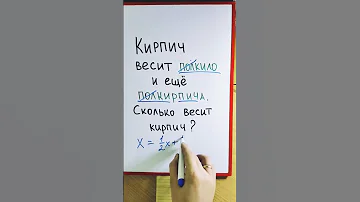 Кирпич
весит полкило
и ещё
полкирпича.
Сколько весит
кирпич?
x = 1/2x+